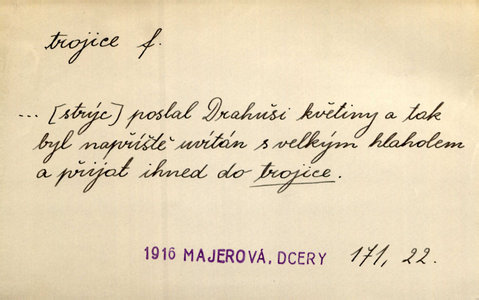 trojice f.
... [strýc] poslal Drahuši květiny a tak
byl napříště uvítán s velkým hlaholem
a přijat ihned do trojice.
1916 MAJEROVÁ, DCERY 171, 22.